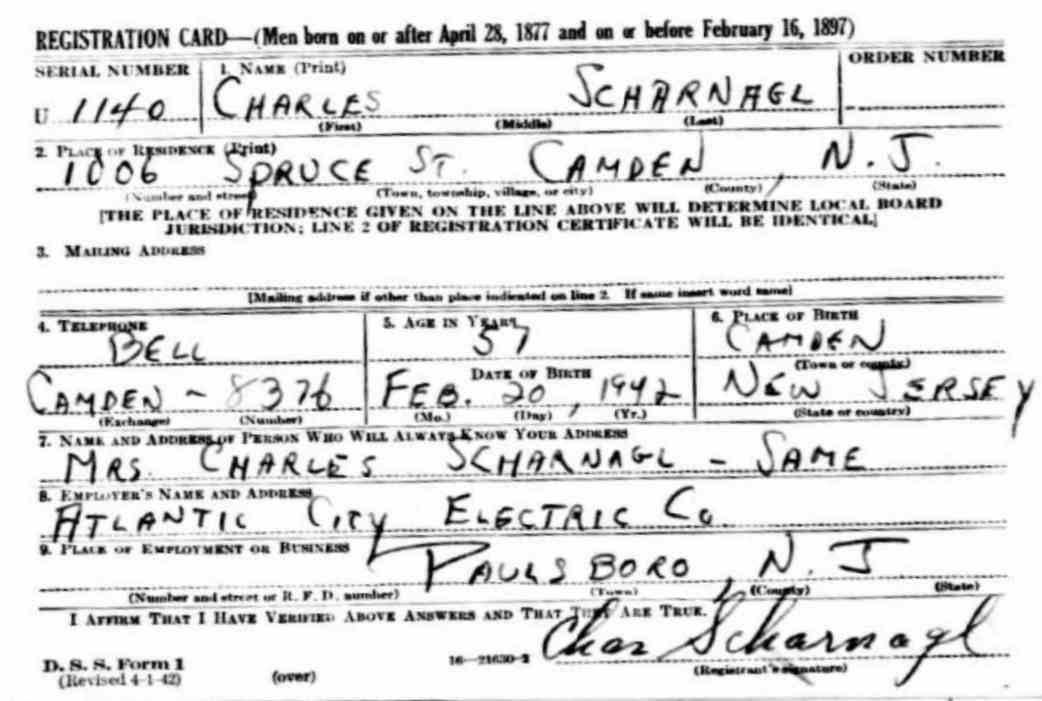 REGISTRATION CARD—(Men born on or after April 28, 1877 and on or before February 16, 1897)
SERIAL NUMBER 1. NAME (Print) ORDER NUMBER
U 1140 CHARLES SCHARNAGL
(First) (Middle) (Last)
2. PLACE OF RESIDENCE (Print)
1006 SPRUCE ST. CAMDEN, N. J.
(Number and street) (Town, township, village, or city) (County) (State)
[THE PLACE OF RESIDENCE GIVEN ON THE LINE ABOVE WILL DETERMINE LOCAL BOARD
JURISDICTION; LINE 2 OF REGISTRATION CERTIFICATE WILL BE IDENTICAL]
3. MAILING ADDRESS
[Mailing address if other than place indicated on line 2. If same insert word same]
4. TELEPHONE 5. AGE IN YEARS 6. PLACE OF BIRTH
BELL 57 CAMDEN
DATE OF BIRTH (Town or county)
CAMDEN - 8376 FEB. 20, 1942 NEW JERSEY
(Exchange) (Number) (Mo.) (Day) (Yr.) (State or country)
7. NAME AND ADDRESS OF PERSON WHO WILL ALWAYS KNOW YOUR ADDRESS
MRS. CHARLES SCHARNAGL - SAME
8. EMPLOYER'S NAME AND ADDRESS
ATLANTIC CITY ELECTRIC Co.
9. PLACE OF EMPLOYMENT OR BUSINESS
PAULSBORO, N. J
(Number and street or R. F. D. number) (Town) (County) (State)
I AFFIRM THAT I HAVE VERIFIED ABOVE ANSWERS AND THAT THEY ARE TRUE.
Chas Scharnagl
D. S. S. Form 1 16—21630-2 (Registrant's signature)
(Revised 4-1-42) (over)